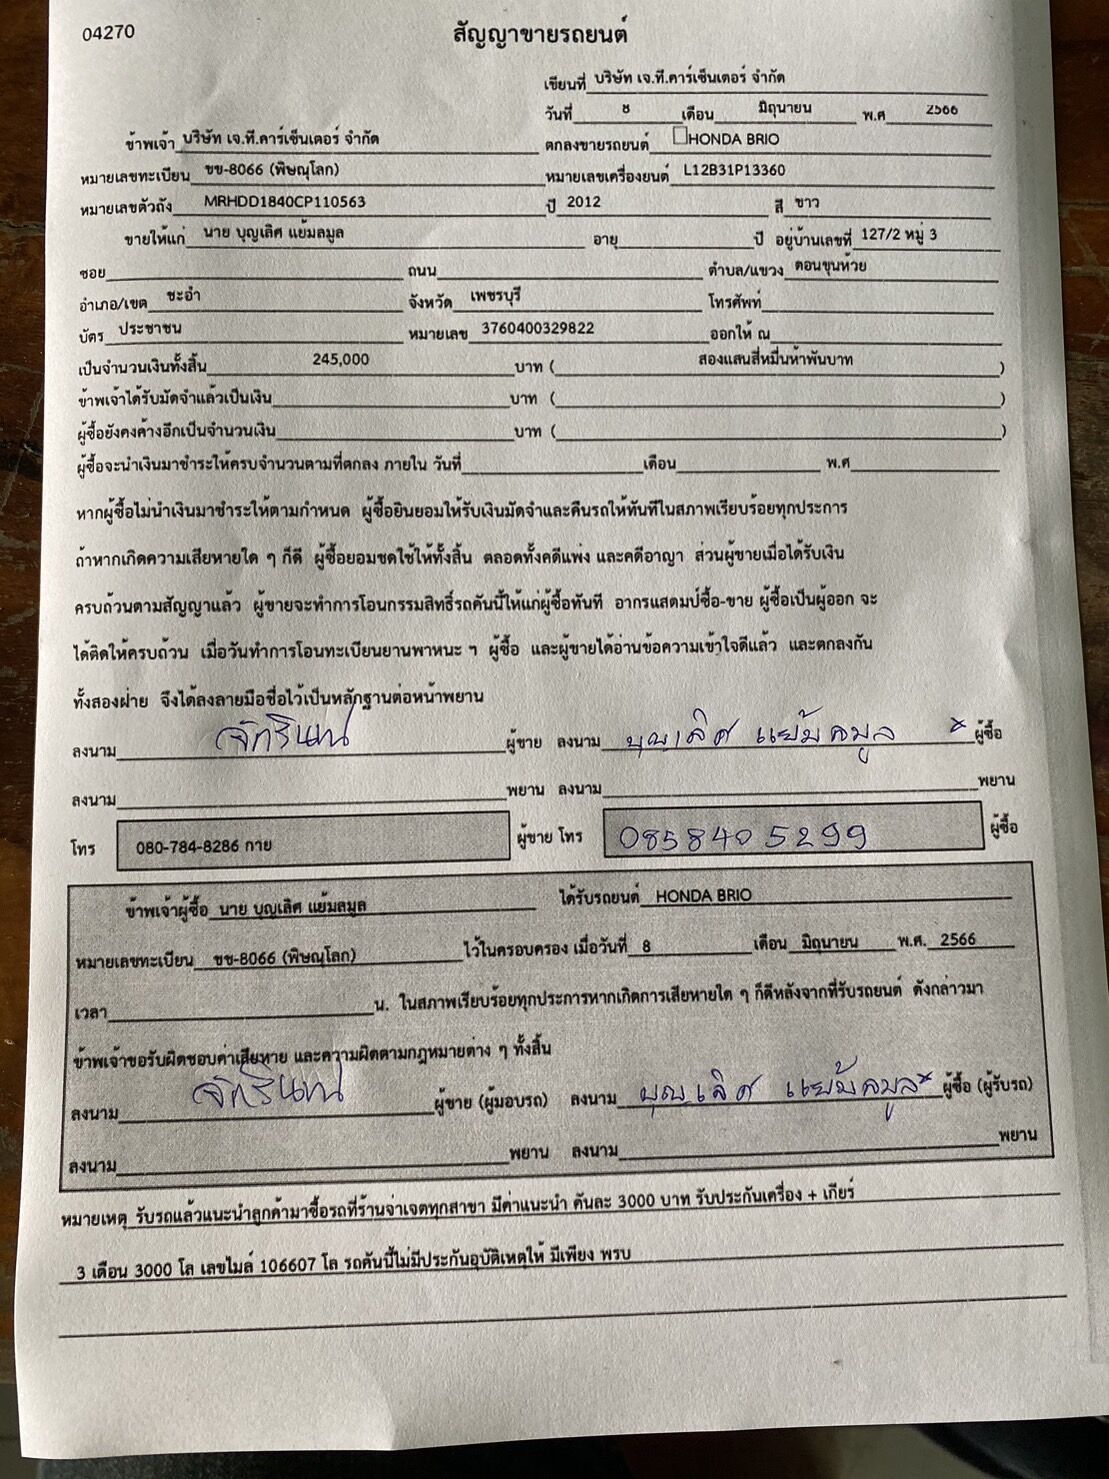 04270
สัญญาขายรถยนต์
เขียนที่ บริษัท เจ.ที.คาร์เซ็นเตอร์ จำกัด
วันที่ 8 เดือน มิถุนายน พ.ศ 2566
ข้าพเจ้า บริษัท เจ.ที.คาร์เซ็นเตอร์ จำกัด ตกลงขายรถยนต์ HONDA BRIO
หมายเลขทะเบียน ขข-8066 (พิษณุโลก) หมายเลขเครื่องยนต์ L12B31P13360
หมายเลขตัวถัง MRHDD1840CP110563 ปี 2012 สี ขาว
ขายให้แก่ นาย บุญเลิศ แย้มลมูล อายุ ปี อยู่บ้านเลขที่ 127/2 หมู่ 3
ซอย ถนน ตำบล/แขวง ดอนขุนห้วย
อำเภอ/เขต ชะอำ จังหวัด เพชรบุรี โทรศัพท์
บัตร ประชาชน หมายเลข 3760400329822 ออกให้ ณ
เป็นจำนวนเงินทั้งสิ้น 245,000 บาท ( สองแสนสี่หมื่นห้าพันบาท )
ข้าพเจ้าได้รับมัดจำแล้วเป็นเงิน บาท ( )
ผู้ซื้อยังคงค้างอีกเป็นจำนวนเงิน บาท ( )
ผู้ซื้อจะนำเงินมาชำระให้ครบจำนวนตามที่ตกลง ภายใน วันที่ เดือน พ.ศ
หากผู้ซื้อไม่นำเงินมาชำระให้ตามกำหนด ผู้ซื้อยินยอมให้รับเงินมัดจำและคืนรถให้ทันทีในสภาพเรียบร้อยทุกประการ
ถ้าหากเกิดความเสียหายใด ๆ ก็ดี ผู้ซื้อยอมชดใช้ให้ทั้งสิ้น ตลอดทั้งคดีแพ่ง และคดีอาญา ส่วนผู้ขายเมื่อได้รับเงิน
ครบถ้วนตามสัญญาแล้ว ผู้ขายจะทำการโอนกรรมสิทธิ์รถคันนี้ให้แก่ผู้ซื้อทันที อากรแสตมป์ซื้อ-ขาย ผู้ซื้อเป็นผู้ออก จะ
ได้ติดให้ครบถ้วน เมื่อวันทำการโอนทะเบียนยานพาหนะ ฯ ผู้ซื้อ และผู้ขายได้อ่านข้อความเข้าใจดีแล้ว และตกลงกัน
ทั้งสองฝ่าย จึงได้ลงลายมือชื่อไว้เป็นหลักฐานต่อหน้าพยาน
ลงนาม จักรินทร์ ผู้ขาย ลงนาม บุญเลิศ แย้มลมูล x ผู้ซื้อ
ลงนาม พยาน ลงนาม พยาน
โทร 080-784-8286 กาย ผู้ขาย โทร 0858405299 ผู้ซื้อ
ข้าพเจ้าผู้ซื้อ นาย บุญเลิศ แย้มลมูล ได้รับรถยนต์ HONDA BRIO
หมายเลขทะเบียน ขข-8066 (พิษณุโลก) ไว้ในครอบครอง เมื่อวันที่ 8 เดือน มิถุนายน พ.ศ. 2566
เวลา น. ในสภาพเรียบร้อยทุกประการหากเกิดการเสียหายใด ๆ ก็ดีหลังจากที่รับรถยนต์ ดังกล่าวมา
ข้าพเจ้าขอรับผิดชอบค่าเสียหาย และความผิดตามกฎหมายต่าง ๆ ทั้งสิ้น
ลงนาม จักรินทร์ ผู้ขาย (ผู้มอบรถ) ลงนาม บุญเลิศ แย้มลมูล x ผู้ซื้อ (ผู้รับรถ)
ลงนาม พยาน ลงนาม พยาน
หมายเหตุ รับรถแล้วแนะนำลูกค้ามาซื้อรถที่ร้านจ่าเจตทุกสาขา มีค่าแนะนำ คันละ 3000 บาท รับประกันเครื่อง + เกียร์
3 เดือน 3000 โล เลขไมล์ 106607 โล รถคันนี้ไม่มีประกันอุบัติเหตุให้ มีเพียง พรบ